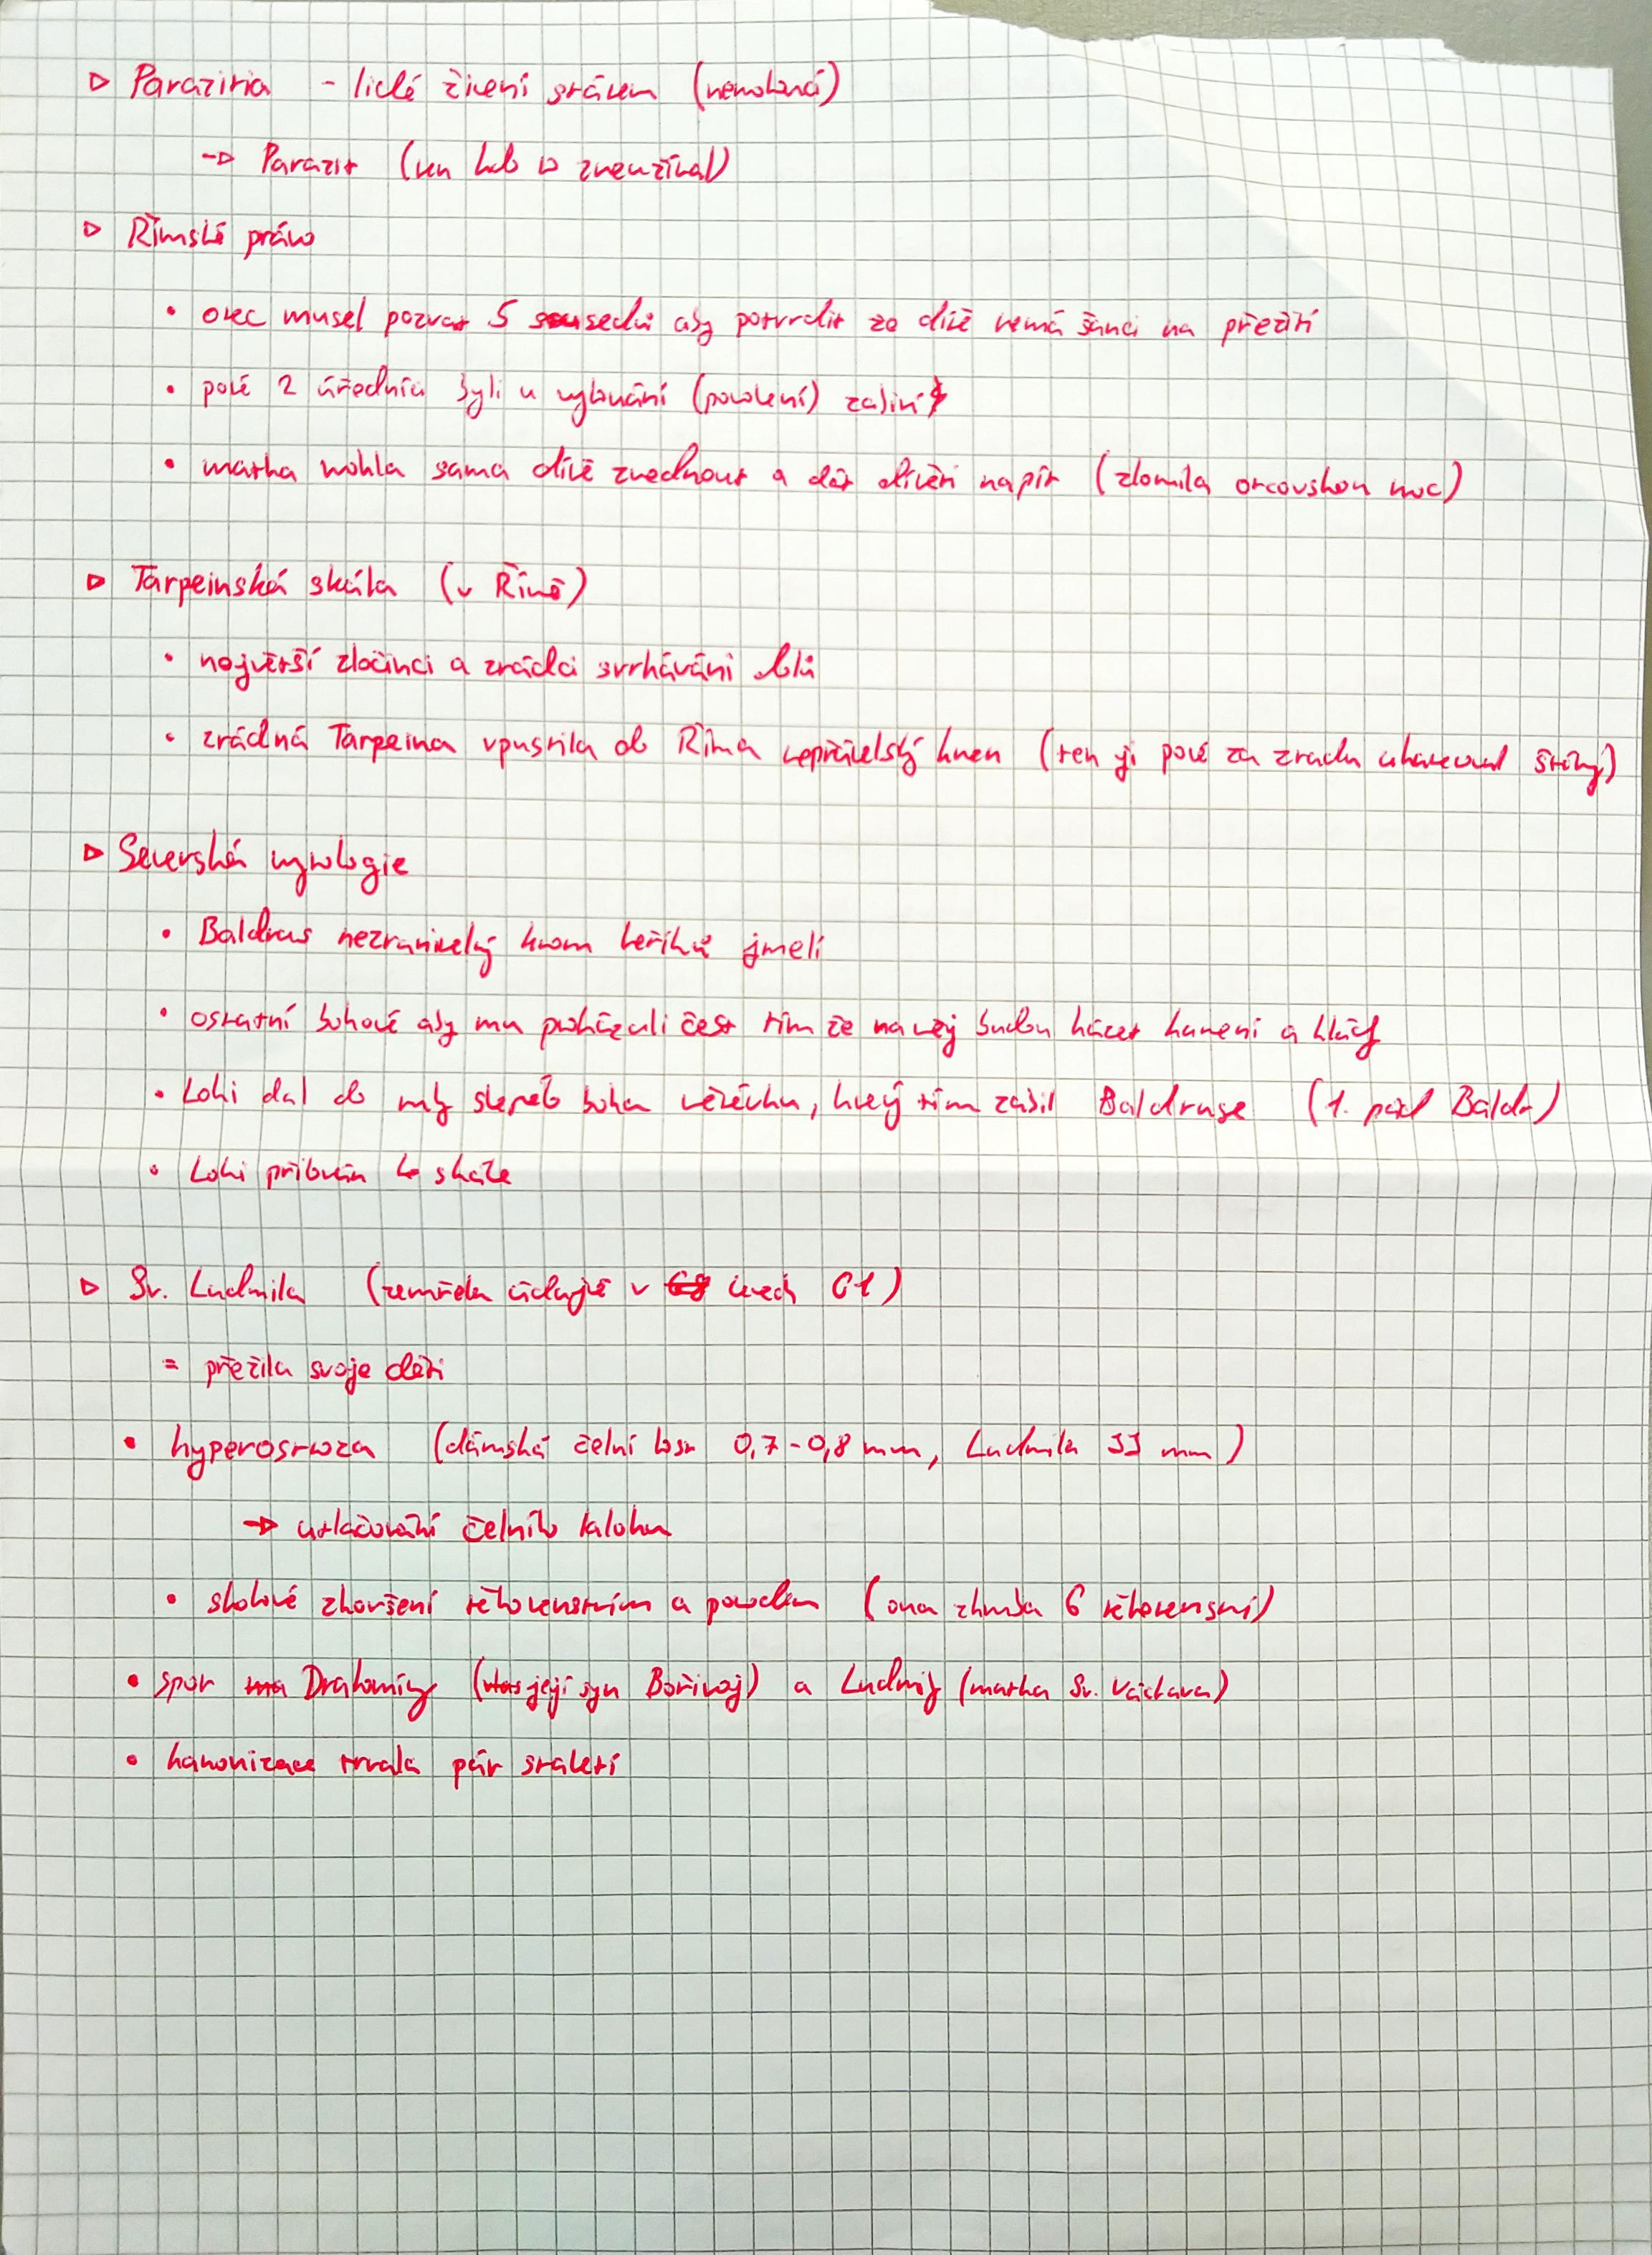 ▷ Parazitia - lidé živení státem (nemohoucí)
→ Parazit (ten kdo to zneužíval)
▷ Římské právo
• otec musel pozvat 5 sousedů aby potvrdit že dítě nemá šanci na přežití
• poté 2 úředníci byli u vykonání (povolení) zabití
• matka mohla sama dítě zvednout a dát dítěti napít (zlomila otcovskou moc)
▷ Tarpeinská skála (v Římě)
• největší zločinci a zrádci svrháváni dolů
• zrádná Tarpeina vpustila do Říma nepřátelský kmen (ten ji poté za zradu ukamenoval štíty)
▷ Severská mytologie
• Baldrus nezranitelný krom keříku jmelí
• ostatní bohové aby mu prokázali čest tím že na něj budou házet kamení a klády
• Loki dal do ruky slepého boha větévku, který tím zabil Baldruse (1. pád Baldr)
• Loki přibután ke skále
▷ Sv. Ludmila (zemřela údajně v letech 61)
= přežila svoje děti
• hyperostoza (dámská čelní kost 0,7-0,8 mm, Ludmila 33 mm)
→ utlačování čelního laloku
• skokové zhoršení těhotenstvím a porodem (ona zhruba 6 těhotenství)
• spor Drahomíry (její syn Bořivoj) a Ludmily (matka Sv. Václava)
• kanonizace trvala pár staletí